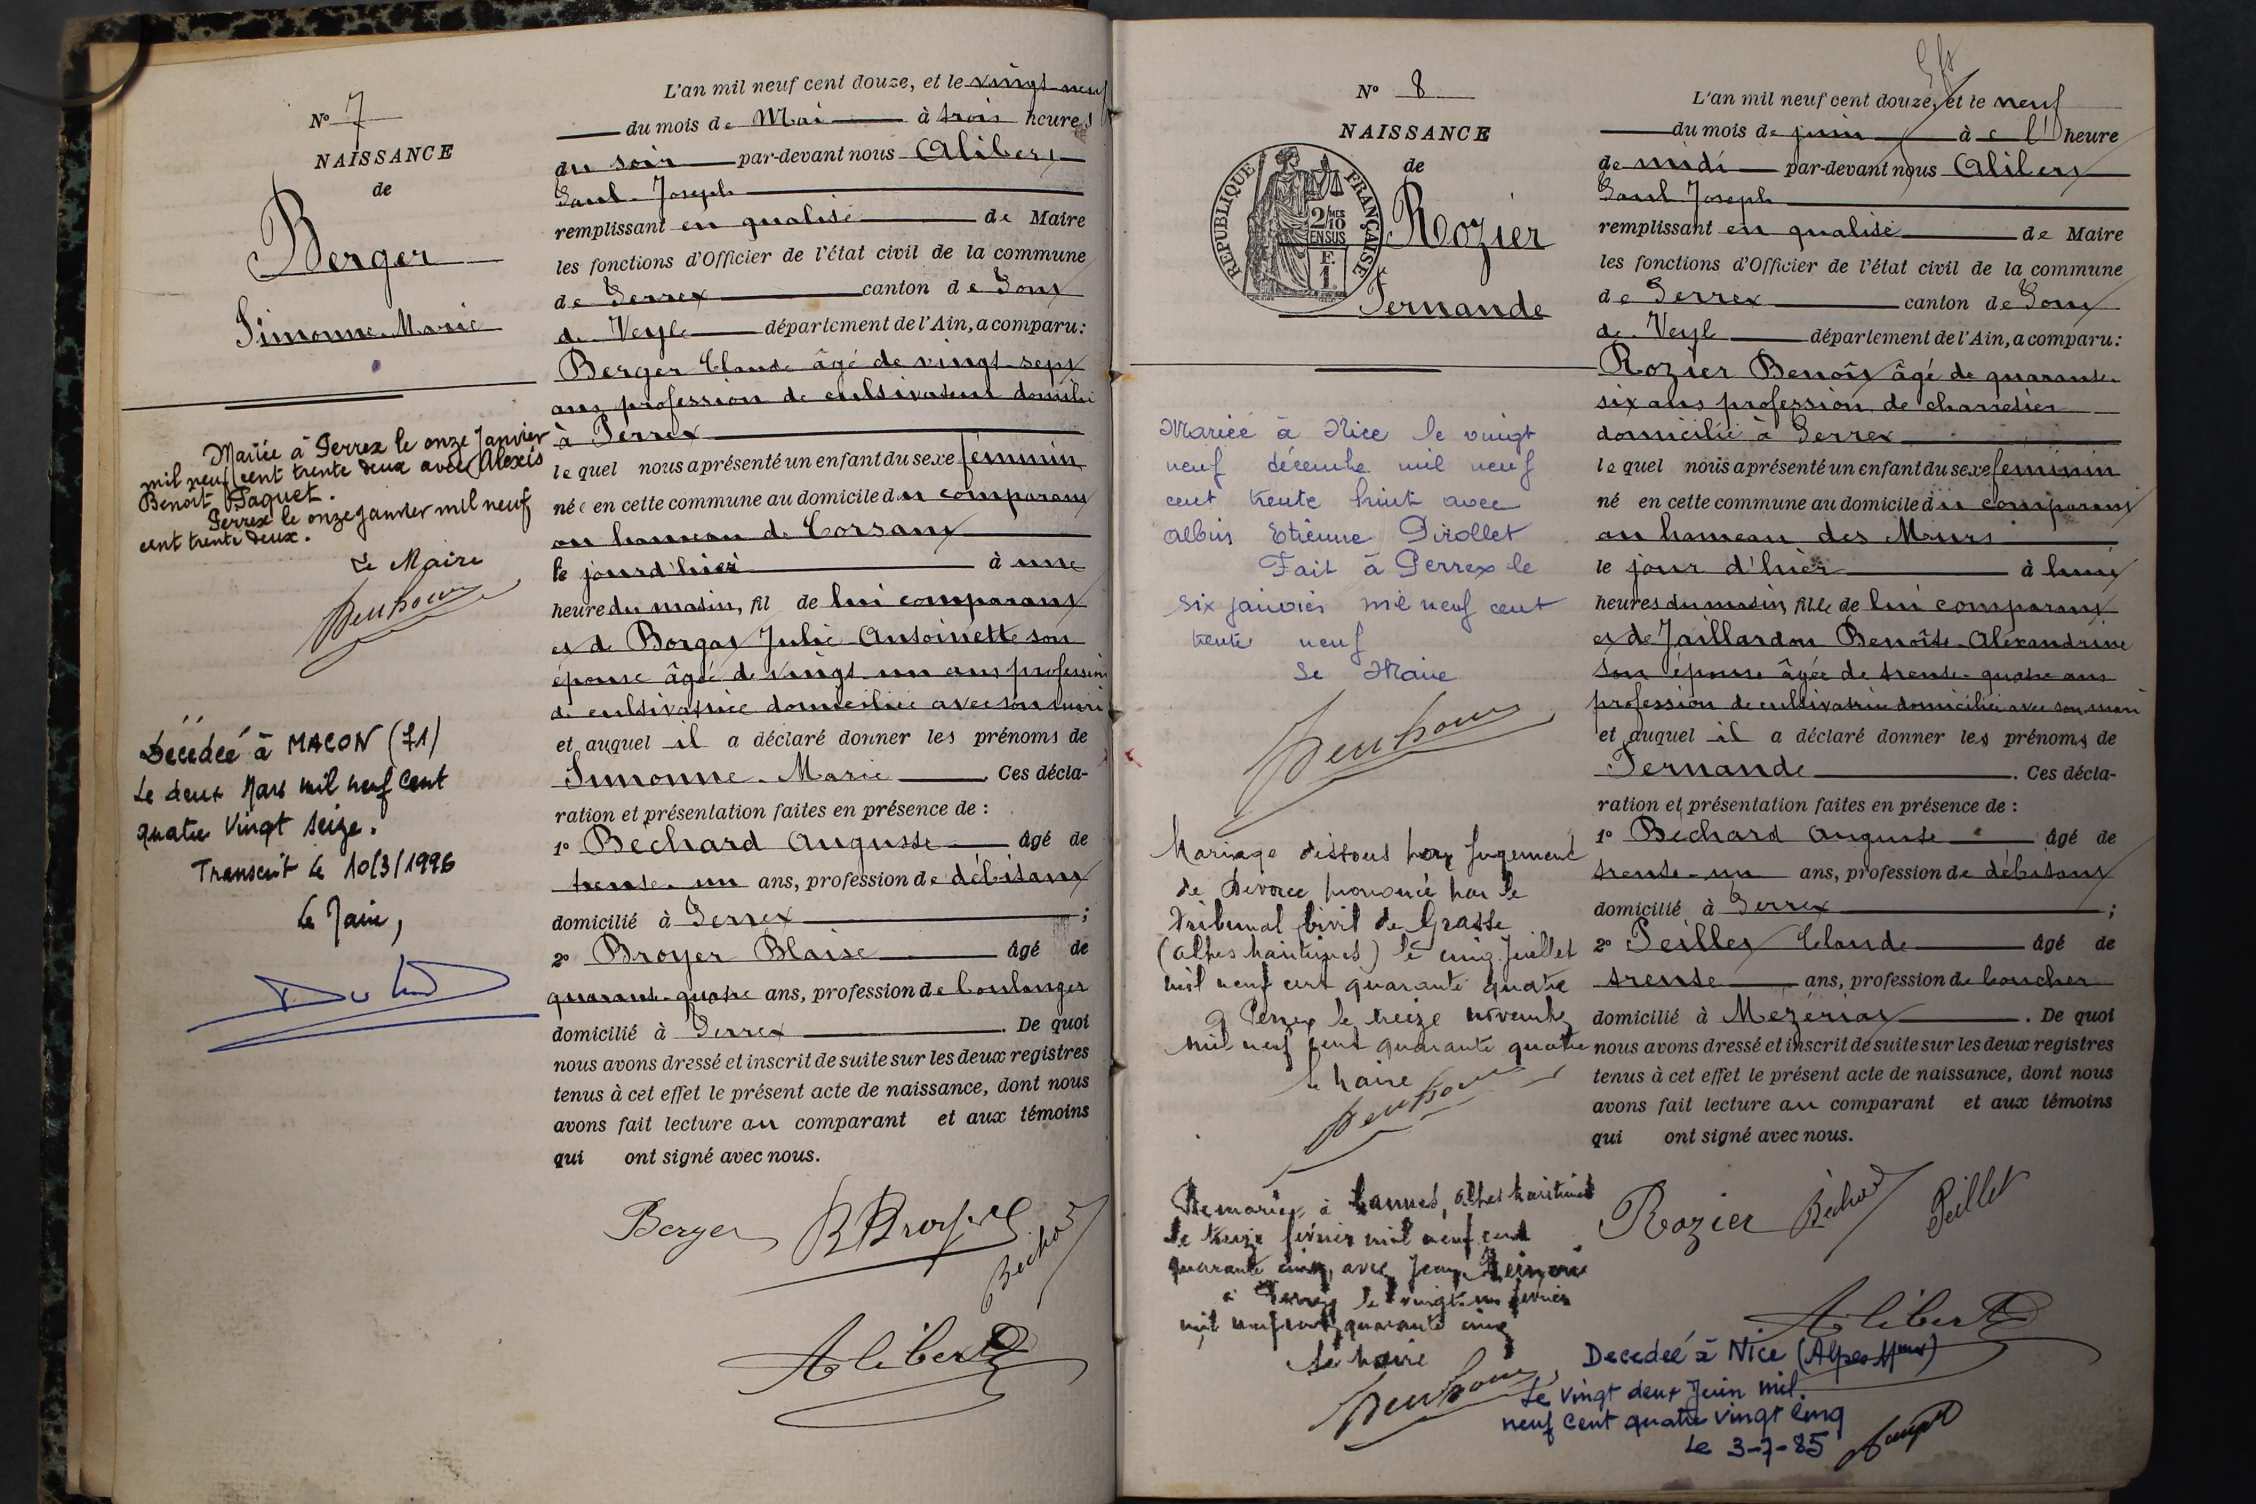 N° 7
NAISSANCE
de
Berger
Simonne Marie
Mariée à Perrex le onze Janvier
mil neuf cent trente deux avec Alexis
Benoit Paquet.
Perrex le onze janvier mil neuf
cent trente deux.
Le Maire
Décédée à MACON (71)
Le deux Mars mil neuf cent
quatre vingt seize.
Transcrit le 10/3/1996
Le Maire,
L'an mil neuf cent douze, et le vingt neuf
du mois de Mai à trois heures
du soir par-devant nous Alibert
Paul Joseph
remplissant en qualité de Maire
les fonctions d'Officier de l'état civil de la commune
de Perrex canton de Pont
de Veyle département de l'Ain, a comparu:
Berger Claude âgé de vingt-sept
ans profession de cultivateur domicilié
à Perrex
lequel nous a présenté un enfant du sexe féminin
née en cette commune au domicile du comparant
au hameau de Corsant
le jourd'hier à une
heure du matin, fil de lui comparant
et de Borgat Julie Antoinette son
épouse âgée de vingt-un ans profession
de cultivatrice domiciliée avec son mari
et auquel il a déclaré donner les prénoms de
Simonne Marie . Ces décla-
ration et présentation faites en présence de :
1° Bechard Auguste âgé de
trente-un ans, profession de débitant
domicilié à Perrex ;
2° Broyer Blaise âgé de
quarante-quatre ans, profession de boulanger
domicilié à Perrex . De quoi
nous avons dressé et inscrit de suite sur les deux registres
tenus à cet effet le présent acte de naissance, dont nous
avons fait lecture au comparant et aux témoins
qui ont signé avec nous.
Berger B Broyer
Bechard
Alibert
N° 8
NAISSANCE
de
RÉPUBLIQUE FRANÇAISE
2/10MES
EN SUS
F.
1.
Rozier
Fernande
Mariée à Nice le vingt
neuf décembre mil neuf
cent trente huit avec
Albin Etienne Dirollet
Fait à Perrex le
six janvier mil neuf cent
trente neuf
Le Maire
Mariage dissous par jugement
de Divorce prononcé par le
Tribunal Civil de Grasse
(Alpes Maritimes) le cinq Juillet
mil neuf cent quarante quatre
à Perrex le treize novembre
mil neuf cent quarante quatre
le Maire
Remariée à Cannes, Alpes Maritimes
le treize février mil neuf cent
quarante cinq, avec Jean
à Perrex le vingt un février
mil neuf cent quarante cinq
Le Maire
L'an mil neuf cent douze, et le neuf
du mois de juin à l'heure
de midi par-devant nous Alibert
Paul Joseph
remplissant en qualité de Maire
les fonctions d'Officier de l'état civil de la commune
de Perrex canton de Pont
de Veyl département de l'Ain, a comparu:
Rozier Benoît âgé de quarante-
six ans profession de charretier
domicilié à Perrex
lequel nous a présenté un enfant du sexe féminin
né en cette commune au domicile du comparant
au hameau des Murs
le jour d'hier à huit
heures du matin, fille de lui comparant
et de Jaillardon Benoîte Alexandrine
son épouse âgée de trente-quatre ans
profession de cultivatrice domiciliée avec son mari
et auquel il a déclaré donner les prénoms de
Fernande . Ces décla-
ration et présentation faites en présence de :
1° Bechard Auguste âgé de
trente-un ans, profession de débitant
domicilié à Perrex ;
2° Peillet Claude âgé de
trente ans, profession de boucher
domicilié à Mézériat . De quoi
nous avons dressé et inscrit de suite sur les deux registres
tenus à cet effet le présent acte de naissance, dont nous
avons fait lecture au comparant et aux témoins
qui ont signé avec nous.
Rozier Bechard Peillet
Alibert
Décédée à Nice (Alpes Mmes)
Le vingt deux Juin mil.
neuf cent quatre vingt cinq
Le 3-7-85